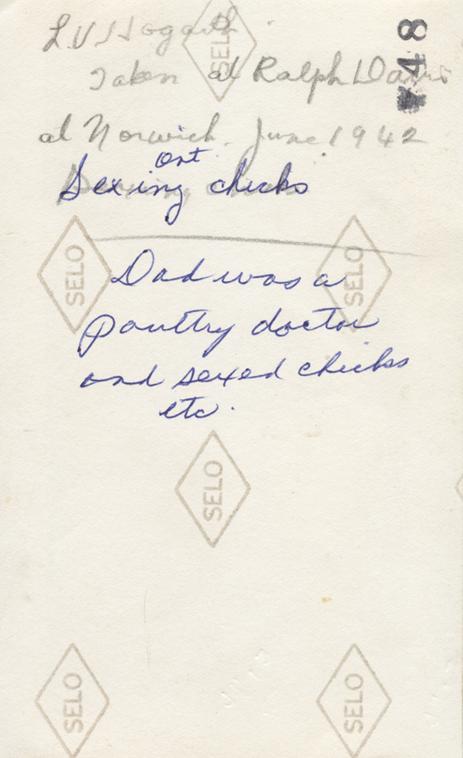 L V Hogarth.
Taken at Ralph Davis
at Norwich. June 1942
Ont.
Sexing chicks
Dad was a
poultry doctor
and sexed chicks
etc.
48
SELO
SELO
SELO
SELO
SELO
SELO